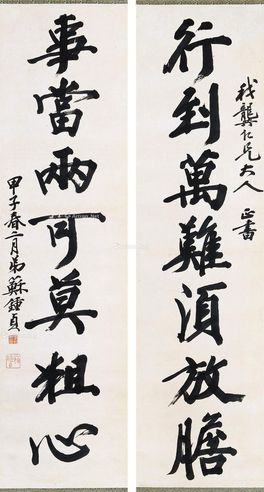 我龔仁兄大人 正書
行到萬難須放膽
事當兩可莫粗心
甲子春二月弟蘇鍾貞